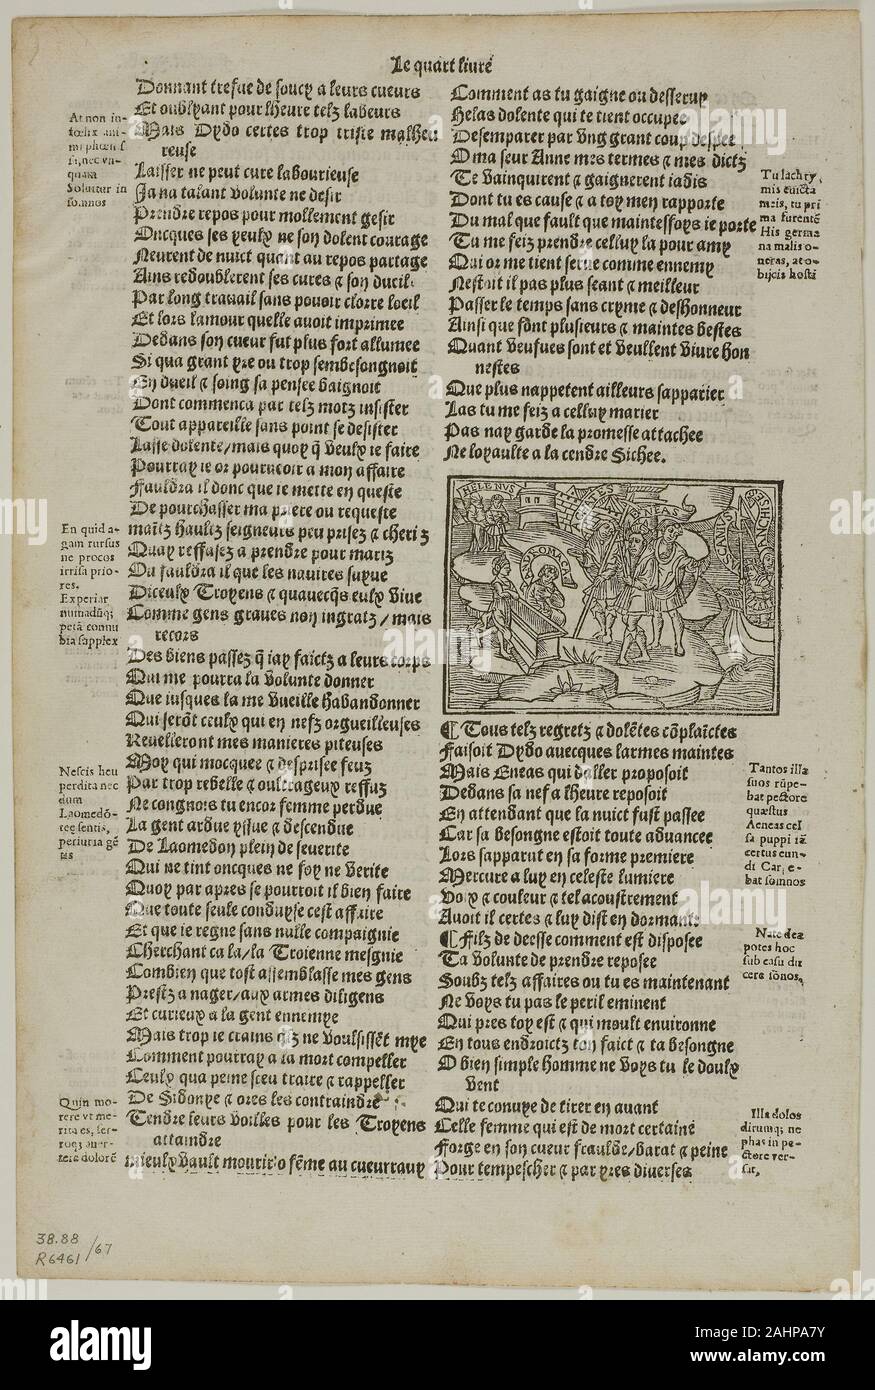 Le quart liure
Donnant trefue de soucy a leurs cueurs
Et oublyant pour lheure telz labeurs
Mais Dydo certes trop triste malheu
reuse
Laisser ne peut cure labourieuse
Ja na talant volunte ne desir
Prendre repos pour mollement gesir
Oncques ses yeulx ne son dolent courage
Neurent de nuict quant au repos partage
Ains redoublerent ses cures & son dueil
Par long trauail sans pouoir clorre loeil
Et lors lamour quelle auoit imprimee
Dedans son cueur fut plus fort allumee
Si qua grant yre ou trop sembesongnoit
En dueil & soing sa pensee baignoit
Dont commenca par telz motz insister
Tout appareille sans point se desister
Lasse dolente/mais quoy q̃ veulx ie faire
Pourray ie or pourueoir a mon affaire
Fauldra il donc que ie mette en queste
De pourchasser ma priere ou requeste
matz haulz seigneurs peu prisez & cheriz
Quay reffusez a prendre pour mariz
Ou fauldra il que les nauires suyue
Diceulx Troyens & quauecq̃s eulx viue
Comme gens graues non ingratz / mais
recors
Des biens passez q̃ iay faictz a leurs corps
Qui me pourra la volunte donner
Que iusques la me vueille habandonner
Qui serõt ceulx qui en nefz orgueilleuses
Reuelleront mes manieres piteuses
Moy qui mocquee & desprisee feuz
Par trop rebelle & oultrageux reffuz
Ne congnois tu encor femme perdue
La gent ardue yssue & descendue
De Laomedon plein de seuerite
Qui ne tint oncques ne foy ne verite
Quoy par apres se pourroit il bien faire
Que toute seule conduyse cest affaire
Et que ie regne sans nulle compaignie
Cherchant ca la/la Troienne mesgnie
Combien que tost assemblasse mes gens
Prestz a nager/aux armes diligens
Et curieux a la gent ennemye
Mais trop ie crains qlz ne voulsissẽt mye
Comment pourray a la mort compeller
Ceulx qua peine sceu traire & rappeller
De Sidonye & ores les contraindre
Tendre leurs voilles pour les Troyens
attaindre
mieulx vault mourir o fẽme au cueur
At non in-
fœlix ani-
mi phœnissa
nec vn-
quam
Soluitur in
somnos
En quid a-
gam rursus
ne procos
irrisa prio-
res.
Experiar
numadũq;
petã connu
bia supplex
Nescis heu
perdita nec
dum
Laomedõ-
tee sentis,
periuria gẽ
tis
Quin mo-
rere vt me-
rita es, fer-
roq3 auer-
tere dolorẽ
Comment as tu gaigne ou desseruy
Helas dolente qui te tient occupee
Desemparer par vng grant coup despee
O ma seur Anne mes termes & mes dictz
Te vainquirent & gaignerent iadis
Dont tu es cause & a toy men rapporte
Du mal que fault que maintessoys ie porte
Tu me feiz prendre celluy la pour amy
Qui or me tient serue comme ennemy
Nestoit il pas plus seant & meilleur
Passer le temps sans cryme & deshonneur
Ainsi que font plusieurs & maintes bestes
Quant veufues sont et veullent viure hon
nestes
Que plus nappetent ailleurs sapparier
Las tu me feiz a celluy marier
Pas nay garde la promesse attachee
Ne loyaulte a la cendre Sichee.
Tu lachry,
mis euicta
meis, tu pri
ma furentẽ
His germa
na malis o-
neras, atq-
bijcis hosti
HELENVS
ANDROMACA
ENEAS
ANCHIS
¶ Tous telz regretz & dolẽtes cõplaictes
Faisoit Dydo auecques larmes maintes
Mais Eneas qui daller proposoit
Dedans sa nef a lheure reposoit
En attendant que la nuict fust passee
Car sa besongne estoit toute aduancee
Lors sapparut en sa forme premiere
Mercure a luy en celeste lumiere
Voix & couleur & tel acoustrement
Auoit il certes & luy dist en dormant
¶ Filz de deesse comment est disposee
Ta volunte de prendre reposee
Soubz telz affaires ou tu es maintenant
Ne voys tu pas le peril eminent
Qui pres toy est & qui moult enuironne
En tous endroictz ton faict & ta besongne
O bien simple homme ne voys tu le doulx
vent
Qui te conuye de tirer en auant
Celle femme qui est de mort certaine
Forge en son cueur fraulde/barat & peine
Pour tempescher & par yres diuerses
Tantos illa
suos rũpe-
bat pectore
quæstus
Aeneas cel
sa puppi iã
certus eun-
di Car, e-
bat somnos
Nate dea
potes hoc
sub casu du
cere sõnos,
Illa dolos
dirumq; ne
phas in pe-
ctore ver-
sat,
38.88
R6461 /67
alamy
Image ID: 2AHPA7Y
www.alamy.com